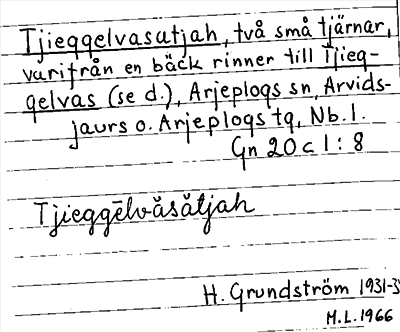 Tjieggelvasatjah, två små tjärnar,
varifrån en bäck rinner till Tjieg-
gelvas (se d.), Arjeplogs sn, Arvids-
jaurs o. Arjeplogs tg, Nb. l.
Gn 20 c 1 : 8
Tjieggē̆lvăsătjah
H. Grundström 1931-3
M.L. 1966